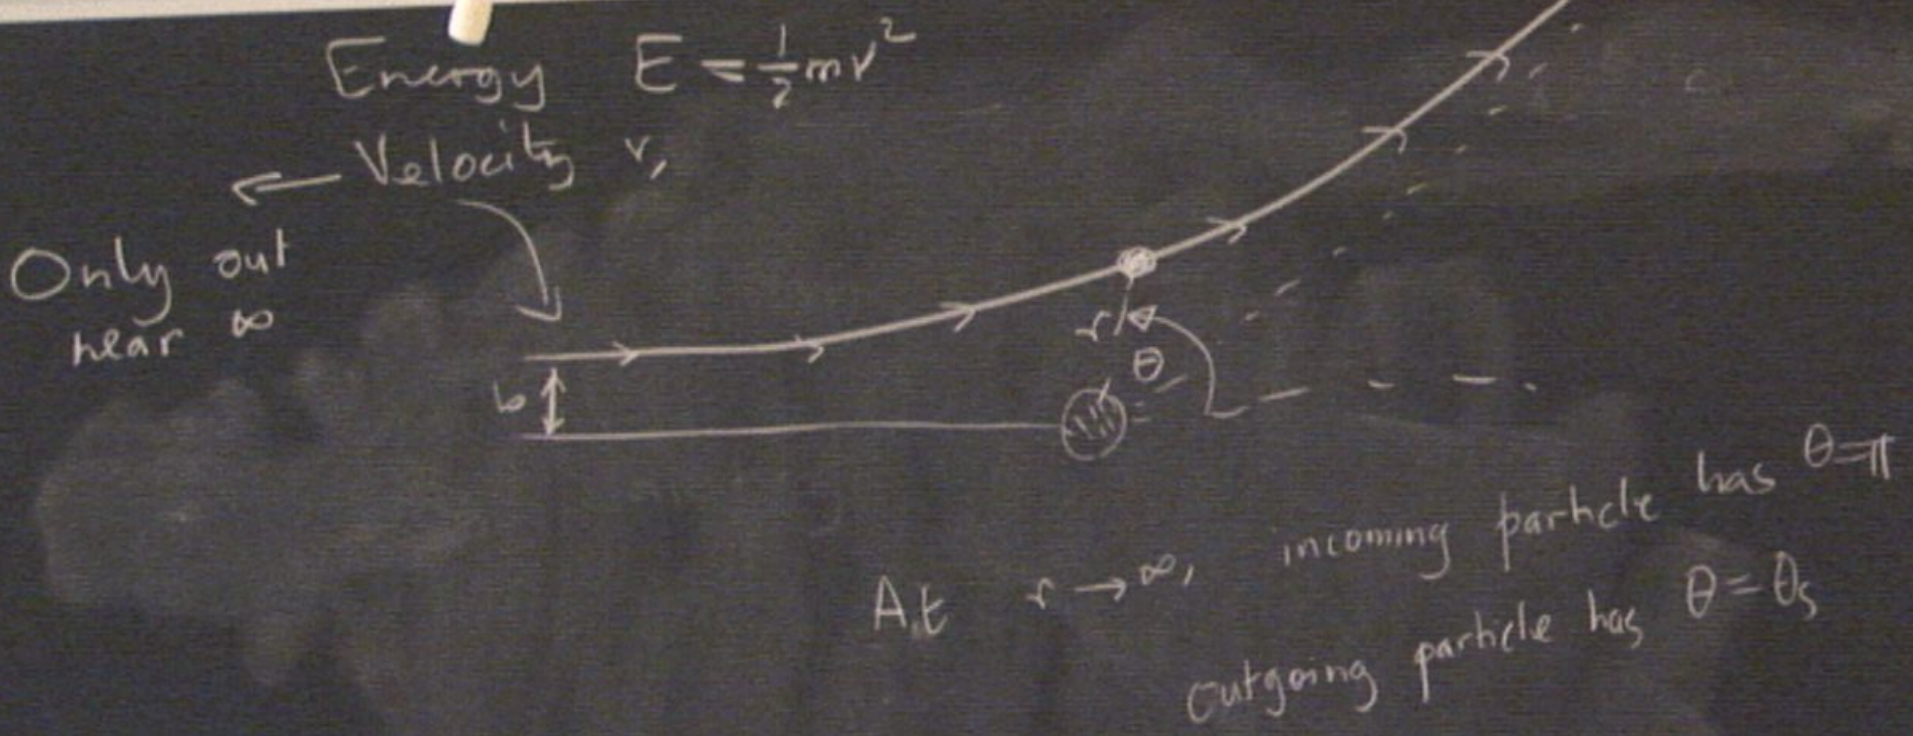 Energy E = ½mv²
← Velocity v,
Only out
near ∞
b
r
θ
At r → ∞, incoming particle has θ=π
outgoing particle has θ = θs